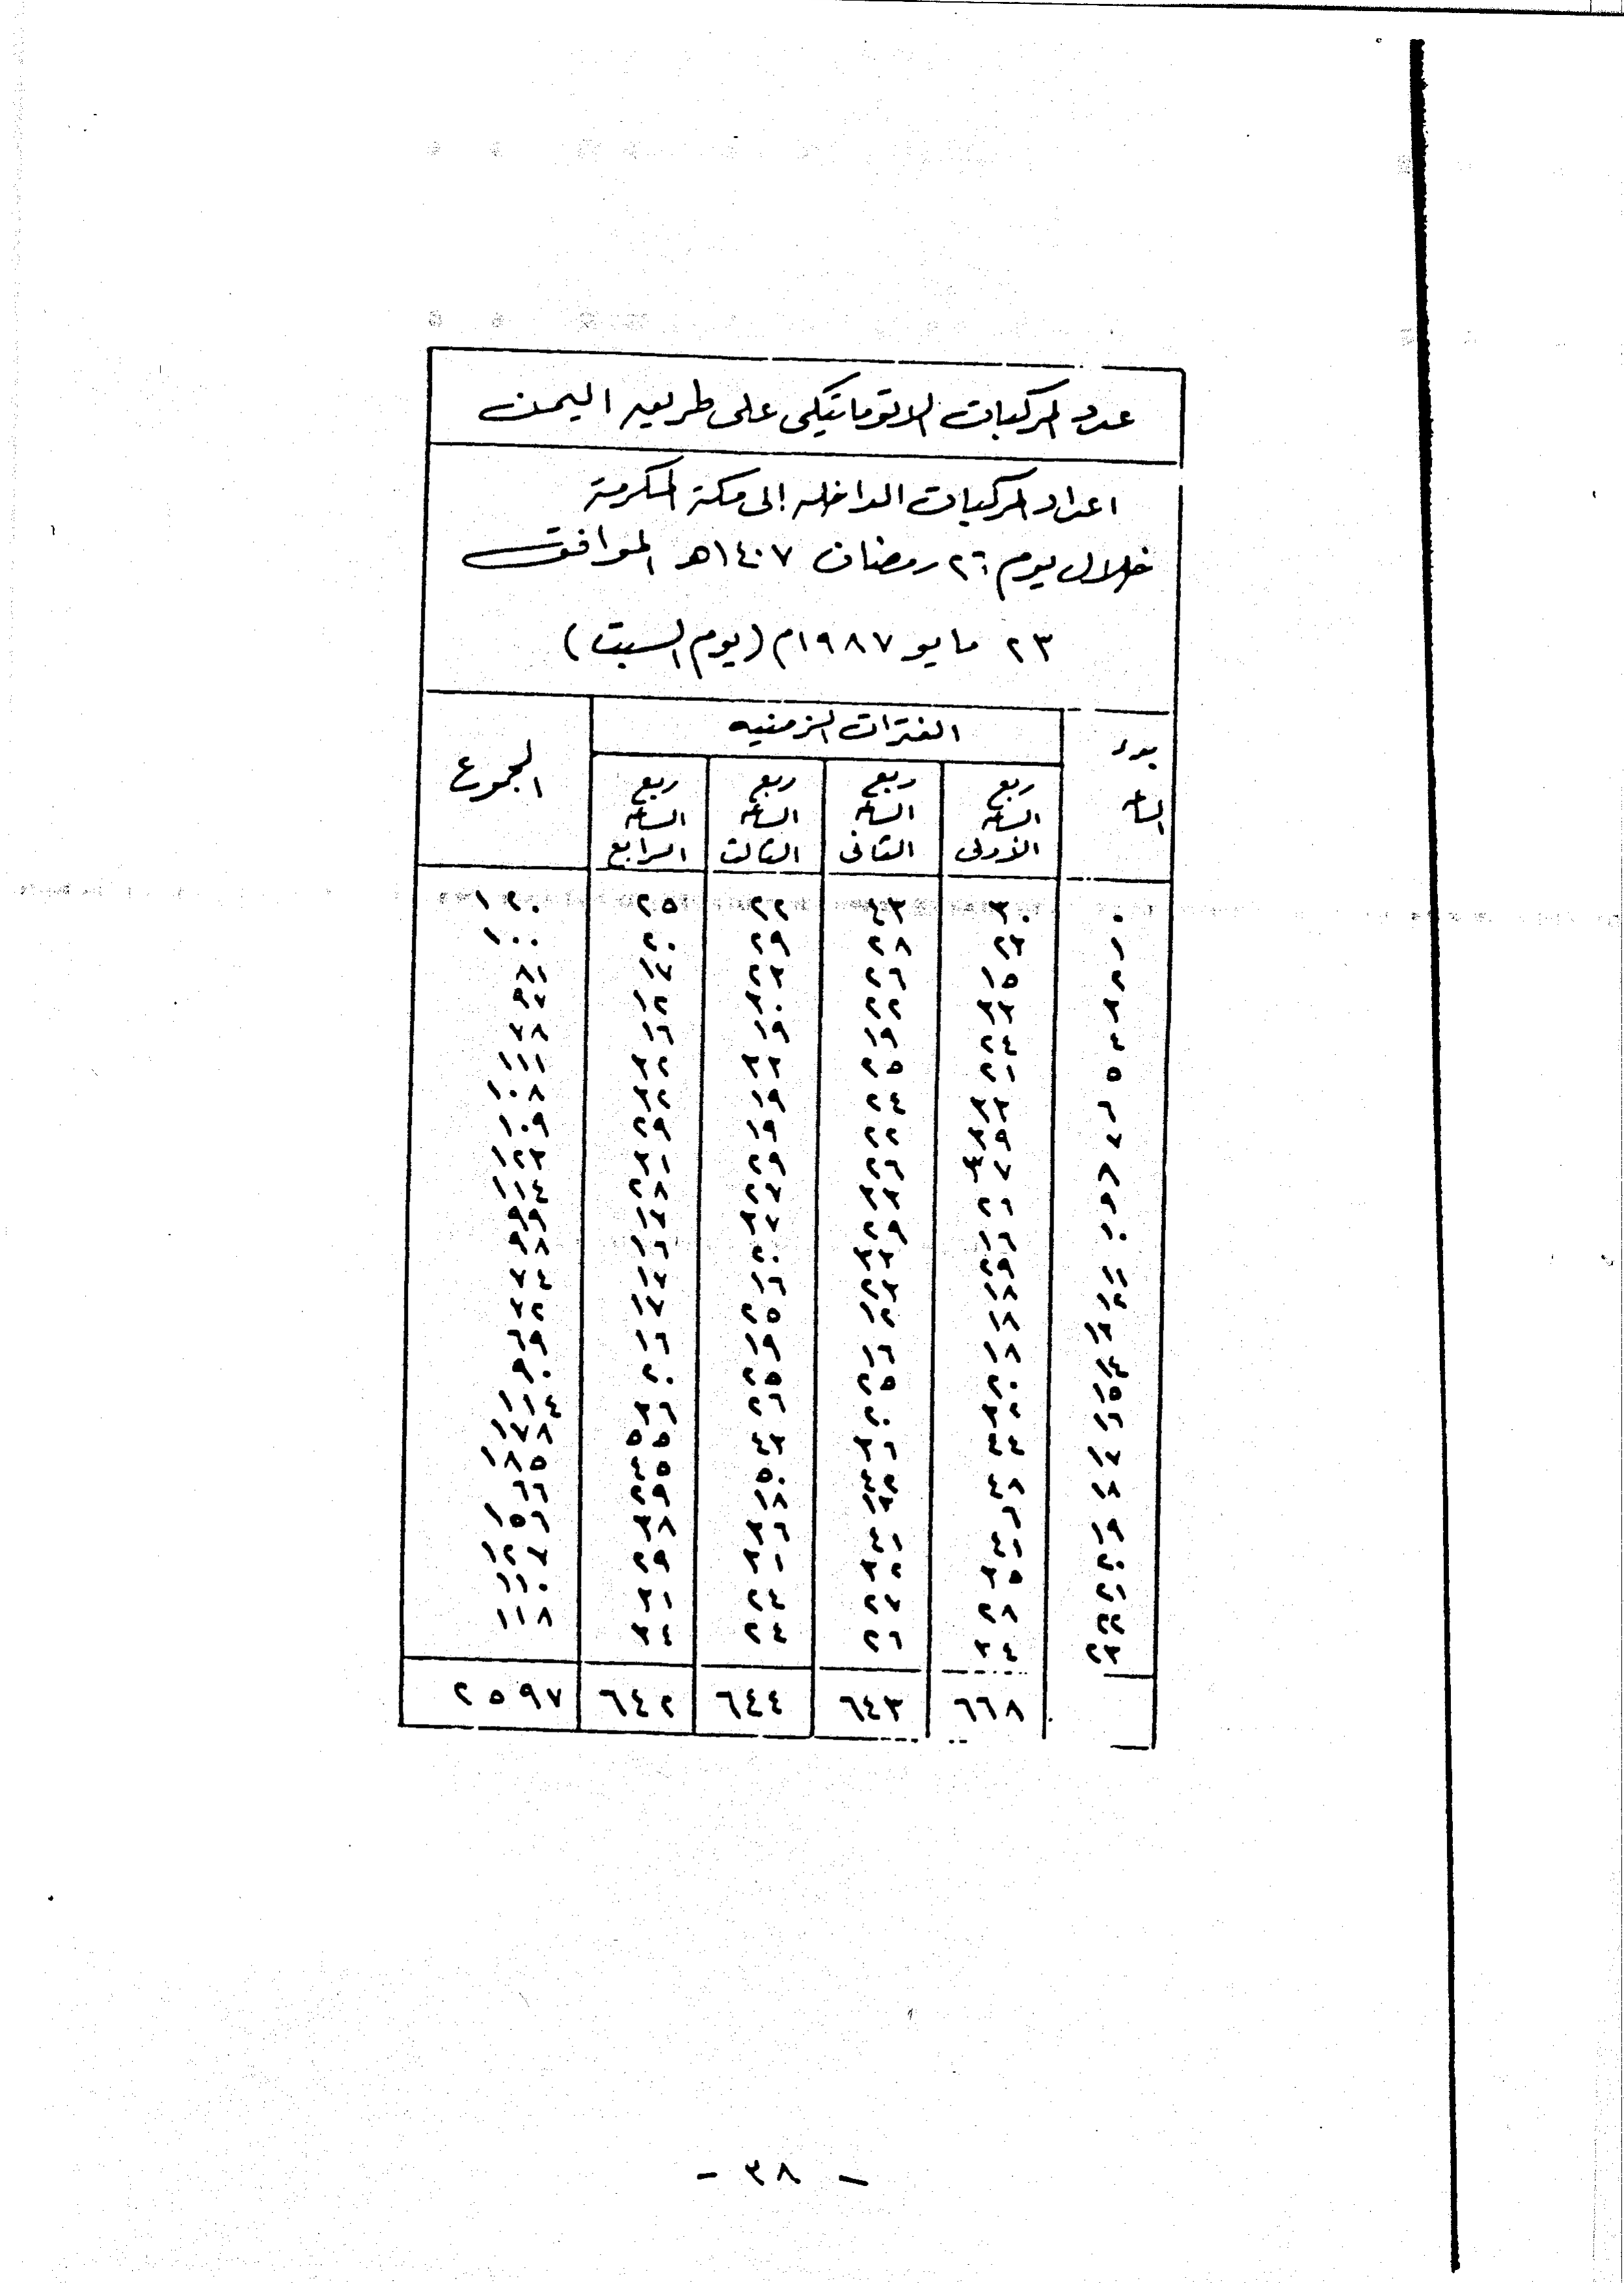 عدد المركبات الاتوماتيكى على طريق اليمن
اعداد المركبات الداخله إلى مكة المكرمة
خلال يوم ٢٦ رمضان ١٤٠٧هـ الموافق
٢٣ مايو ١٩٨٧م (يوم السبت)
بدء الساعه | الفترات الزمنيه | المجموع
ربع الساعه الأولى | ربع الساعه الثانى | ربع الساعه الثالث | ربع الساعه الرابع
٠ ٣٠ ٤٣ ٢٢ ٢٥ ١٢٠
١ ٢٣ ٢٨ ٢٩ ٢٠ ١٠٠
٢ ١٥ ٢٦ ٢٣ ١٧ ٨١
٣ ٣٣ ٢٢ ٣٠ ١٢ ٩٧
٤ ٢٤ ١٩ ١٩ ١٦ ٧٨
٥ ٢١ ٢٥ ٣٣ ٣٢ ١١١
٦ ٣٣ ٢٤ ١٩ ٣٢ ١٠٨
٧ ٣٩ ٢٢ ١٩ ٢٩ ١٠٩
٨ ٣٧ ٢٦ ٢٩ ٣١ ١٢٣
٩ ٢٦ ٣٣ ٢٧ ٢٨ ١١٤
١٠ ١٦ ٢٩ ٣٧ ١٧ ٩٩
١١ ٢٩ ٣٣ ٢٠ ١٦ ٩٨
١٢ ١٨ ٢٣ ١٦ ١٧ ٧٤
١٣ ١٨ ١٢ ٢٥ ١٧ ٧٢
١٤ ١٨ ١٦ ١٩ ١٦ ٦٩
١٥ ٢٠ ٢٥ ٢٥ ٢٠ ٩٠
١٦ ٣٢ ٢٠ ٢٦ ٣٦ ١١٤
١٧ ٤٤ ٣٦ ٤٣ ٥٥ ١٧٨
١٨ ٤٨ ٤٢ ٥٠ ٤٥ ١٨٥
١٩ ٦ ١٣ ١٨ ٢٩ ٦٦
٢٠ ٤١ ٤١ ٣٦ ٣٨ ١�٦
٢١ ٣٥ ٣٢ ٣١ ٢٩ ١٢٧
٢٢ ٢٨ ٢٧ ٢٤ ٣١ ١١٠
٢٣ ٣٤ ٢٦ ٢٤ ٣٤ ١١٨
٦٦٨ ٦٤٣ ٦٤٤ ٦٤٢ ٢٥٩٧
- ٣٨ -